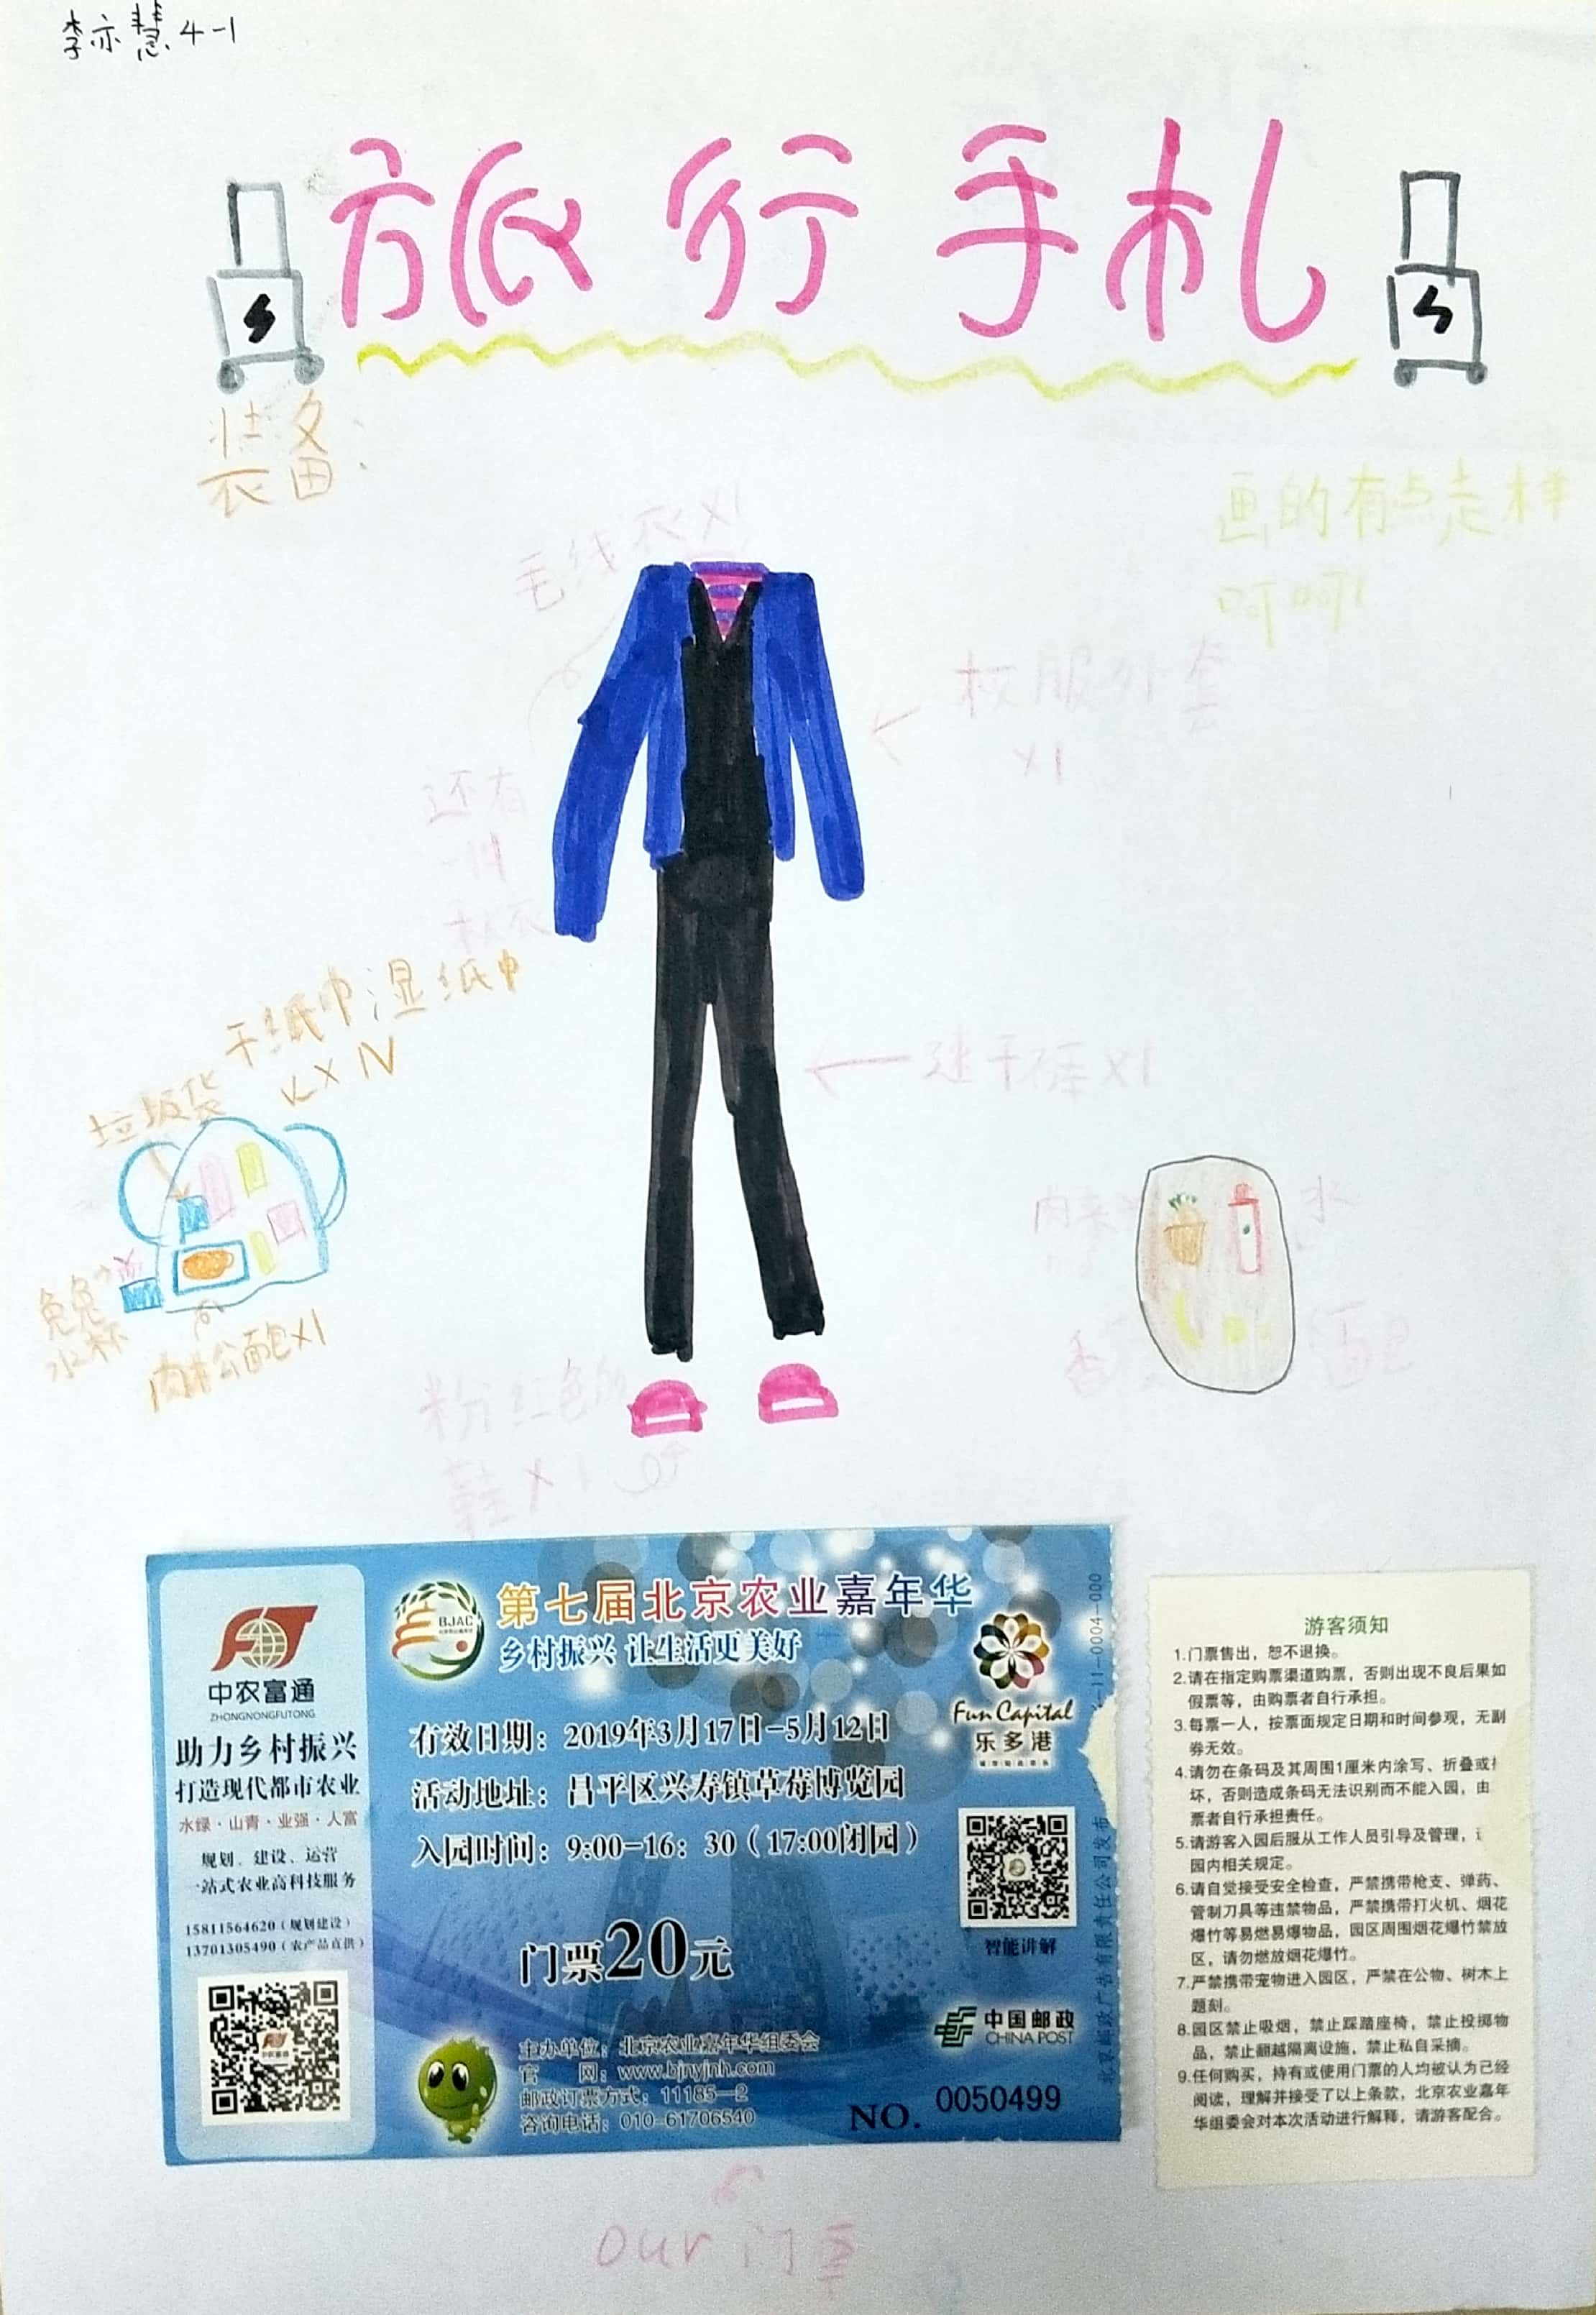 李亦慧4-1
旅行手札
装备:
画的有点走样
呵呵!
毛线衣X1
校服外套
X1
还有
一件
秋衣
干纸巾湿纸巾
X N
垃圾袋
X1
兔兔
水杯
肉松面包X1
水
面包
粉红色
鞋X1
中农富通
ZHONGNONGFUTONG
助力乡村振兴
打造现代都市农业
水绿·山青·业强·人富
规划、建设、运营
一站式农业高科技服务
15811564620(规划建设)
13701305490(农产品直供)
BJAC
第七届北京农业嘉年华
乡村振兴 让生活更美好
Fun Capital
乐多港
有效日期：2019年3月17日-5月12日
活动地址：昌平区兴寿镇草莓博览园
入园时间：9:00-16：30（17:00闭园）
智能讲解
门票20元
中国邮政
CHINA POST
主办单位：北京农业嘉年华组委会
官 网：www.bjnyjnh.com
邮政订票方式：11185-2
咨询电话：010-61706540
NO. 0050499
-11-0004-000
北京邮政广告有限责任公司发布
游客须知
1.门票售出，恕不退换。
2.请在指定购票渠道购票，否则出现不良后果如
假票等，由购票者自行承担。
3.每票一人，按票面规定日期和时间参观，无副
券无效。
4.请勿在条码及其周围1厘米内涂写、折叠或
坏，否则造成条码无法识别而不能入园，由
票者自行承担责任。
5.请游客入园后服从工作人员引导及管理，
园内相关规定。
6.请自觉接受安全检查，严禁携带枪支、弹药、
管制刀具等违禁物品，严禁携带打火机、烟花
爆竹等易燃易爆物品，园区周围烟花爆竹禁放
区，请勿燃放烟花爆竹。
7.严禁携带宠物进入园区，严禁在公物、树木上
题刻。
8.园区禁止吸烟，禁止踩踏座椅，禁止投掷物
品，禁止翻越隔离设施，禁止私自采摘。
9.任何购买，持有或使用门票的人均被认为已经
阅读，理解并接受了以上条款，北京农业嘉年
华组委会对本次活动进行解释，请游客配合。
our门票